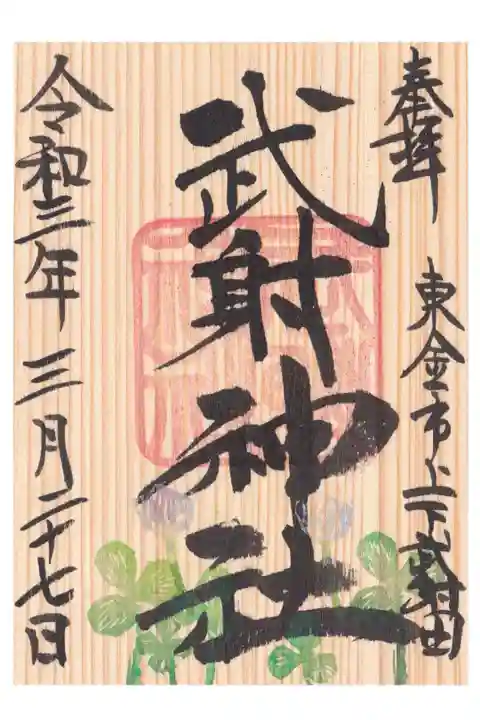 奉拝
東金市上下武射田
武射神社
令和三年三月二十七日